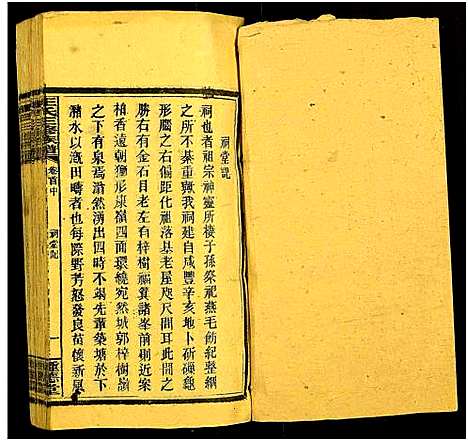 祠堂記
祠也者祖宗神靈所棲子孫祭祀燕毛飭紀整綱
之所不綦重哉我祠建自咸豐辛亥地卜硏磚龜
形腦之右偏距化祖落基老屋咫尺間耳此開之
勝右有金石目老左有梓樹福質諸峯前則近案
柏香遠朝獅形康嶺四面環繞宛然城郭梓樹嶺
之下有泉焉滃然湧出四時不竭先輩築塘於下
瀦水以漑田疇者也每際野芳怒發良苗懷新風
卷首中
祠堂記